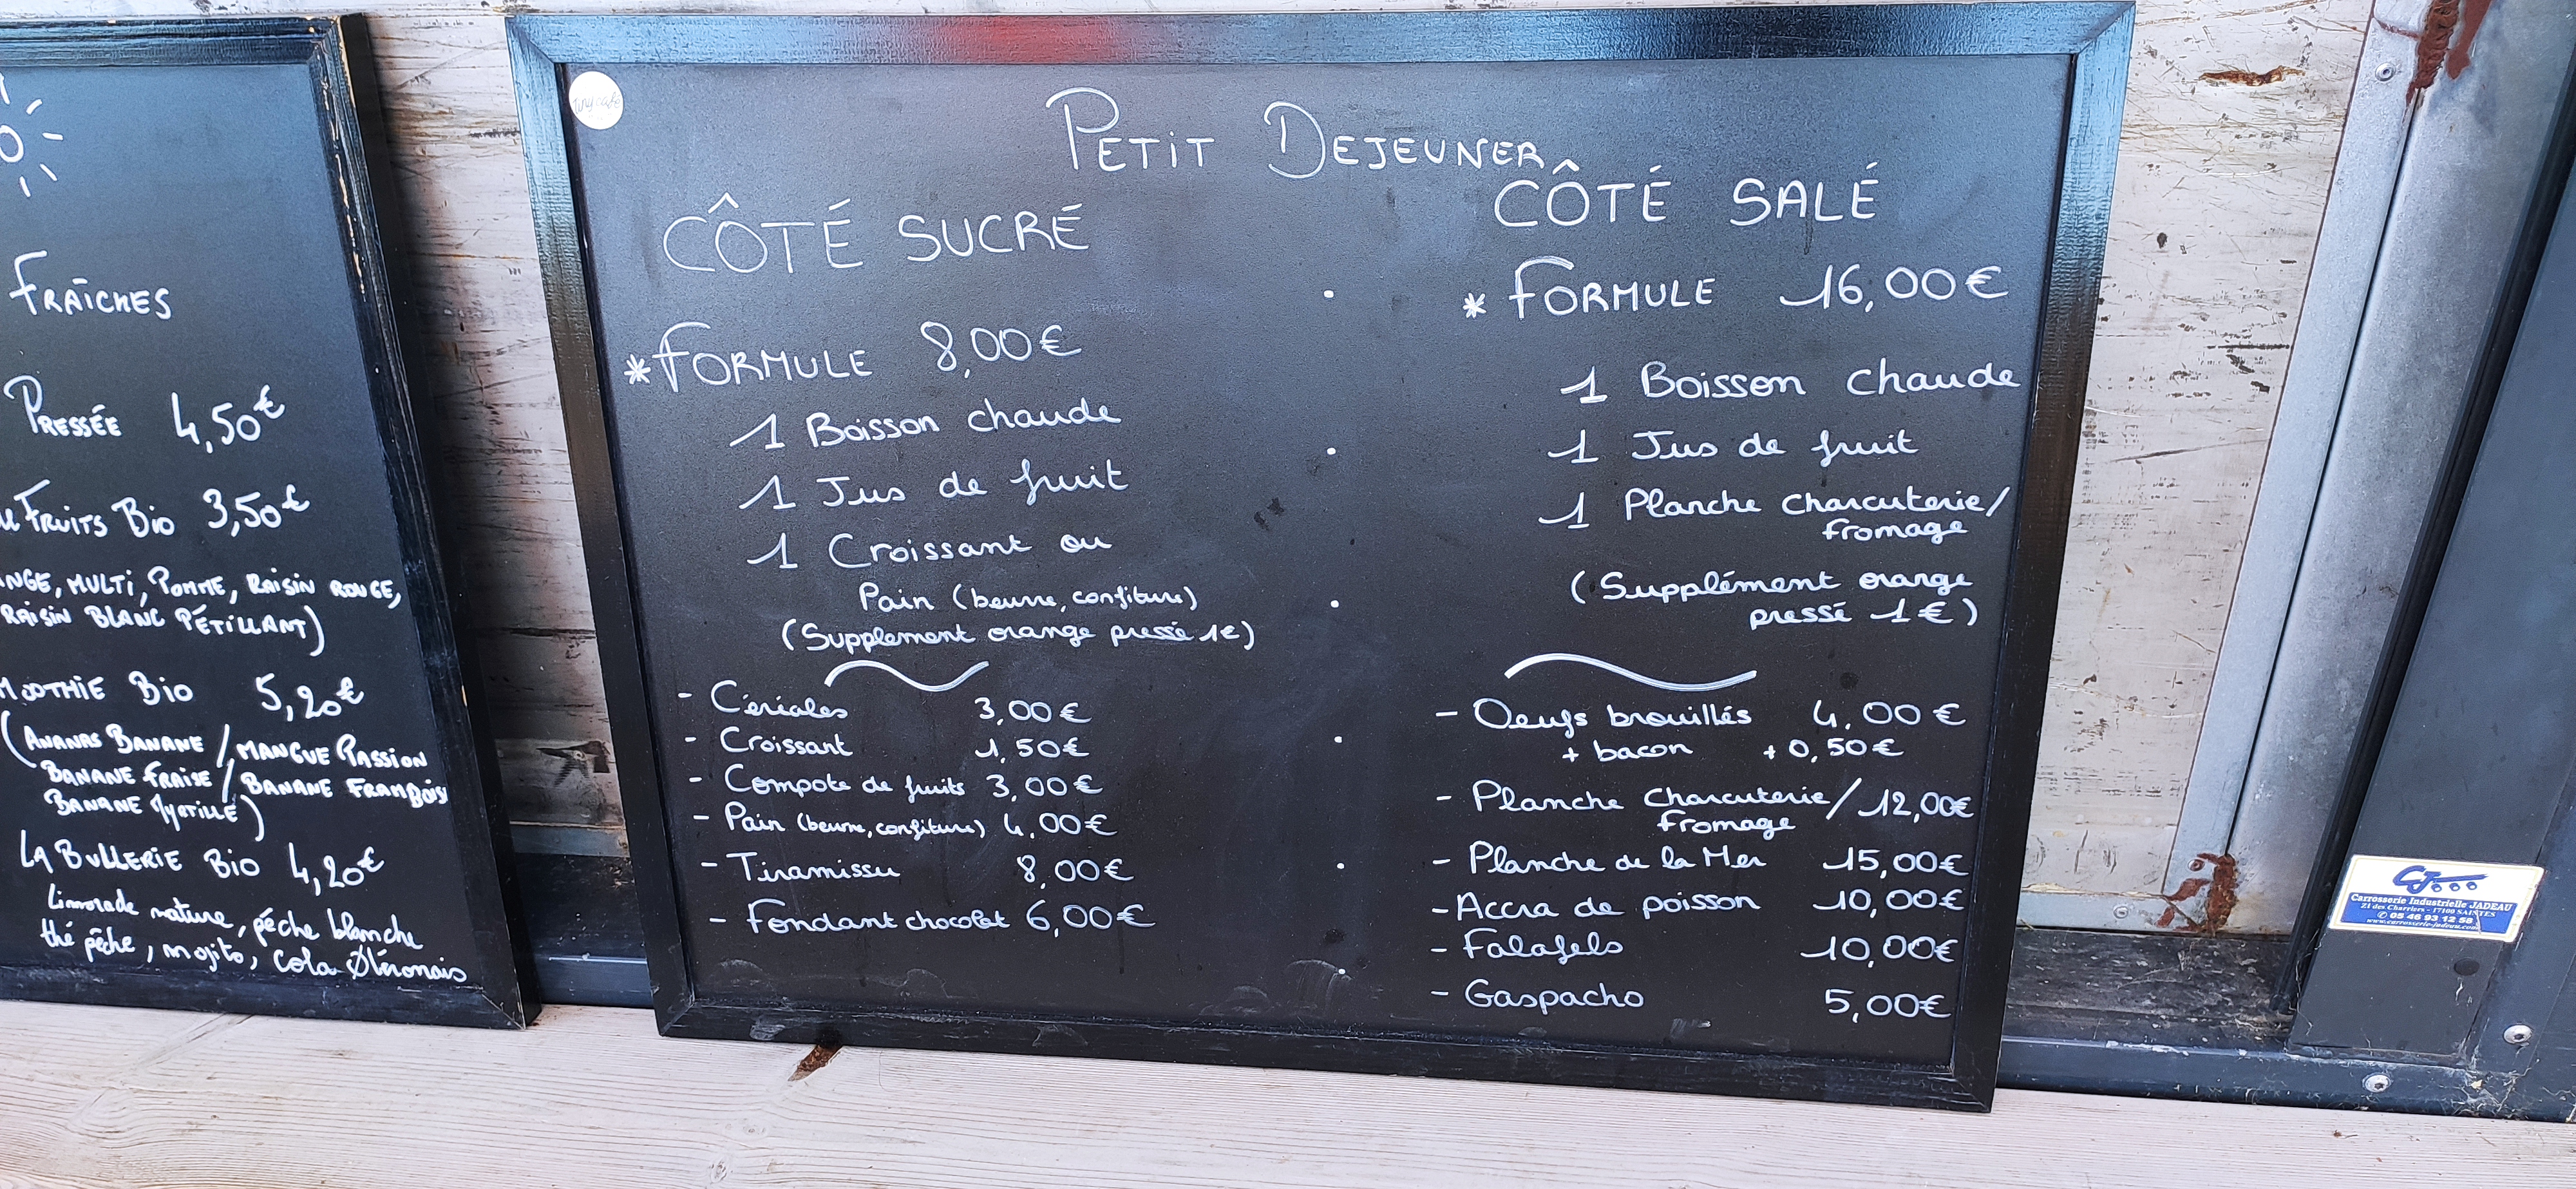 FRAÎCHES
PRESSÉE 4,50€
FRUITS BIO 3,50€
MULTI, POMME, RAISIN ROUGE,
RAISIN BLANC PÉTILLANT)
BIO 5,20€
(ANANAS BANANE / MANGUE PASSION
BANANE FRAISE / BANANE FRAMBOIS
BANANE MYRTILLE)
LA BULLERIE BIO 4,20€
Limonade nature, pêche blanche
thé pêche, mojito, cola Oléronais
Tiny café
PETIT DEJEUNER
CÔTÉ SUCRÉ
*FORMULE 8,00€
1 Boisson chaude
1 Jus de fruit
1 Croissant ou
Pain (beurre, confiture)
(Supplement orange pressé 1€)
- Céréales 3,00€
- Croissant 1,50€
- Compote de fruits 3,00€
- Pain (beurre, confiture) 4,00€
- Tiramissu 8,00€
- Fondant chocolat 6,00€
CÔTÉ SALÉ
* FORMULE 16,00€
1 Boisson chaude
1 Jus de fruit
1 Planche charcuterie/
fromage
(Supplément orange
pressé 1€)
- Oeufs brouillés 4,00€
+ bacon +0,50€
- Planche Charcuterie/ 12,00€
fromage
- Planche de la Mer 15,00€
- Accra de poisson 10,00€
- Falafels 10,00€
- Gaspacho 5,00€
CJ
Carrosserie Industrielle JADEAU
21 des Charriers - 17100 SAINTES
05 46 93 12 58
www.carrosserie-jadeau.com